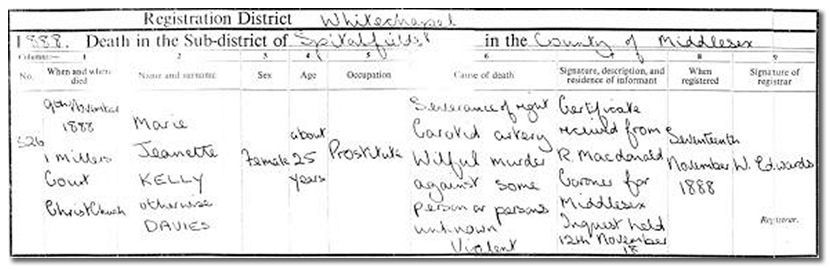 Registration District Whitechapel
1888. Death in the Sub-district of Spitalfields in the County of Middlesex
Columns:— 1 2 3 4 5 6 7 8 9
No. When and where died Name and surname Sex Age Occupation Cause of death Signature, description, and residence of informant When registered Signature of registrar
326
9th November
1888
1 Millers
Court
ChristChurch
Marie
Jeanette
KELLY
otherwise
DAVIES
Female
about
25
years
Prostitute
Severance of right
Carotid artery
Wilful murder
against some
Person or persons
unknown
Violent
Certificate
received from
R. Macdonald
Coroner for
Middlesex
Inquest held
12th November
18
Seventeenth
November
1888
W. Edwards
Registrar.